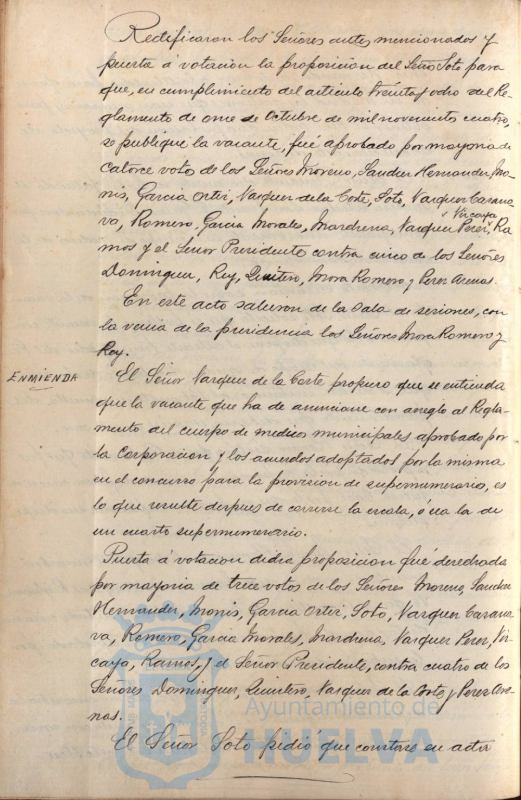 Rectificaron los Señores antes mencionados y
puesta á votación la proposición del Señor Soto para
que, en cumplimiento del artículo treinta y ocho del Re-
glamento de once de Octubre de mil novecientos cuatro,
se publique la vacante, fué aprobado por mayoria de
catorce votos de los Señores Moreno, Sanchez Hernandez, Mo-
nis, Garcia Ortiz, Vazquez de la Corte, Soto, Vazquez Casana-
va, Romero, Garcia Morales, Marchena, Vazquez Perez, Vizcaya, Ra-
mos y el Señor Presidente contra cinco de los Señores
Dominguez, Rey, Quintero, Mora Romero y Perez Arenas.
En este acto salieron de la sala de sesiones, con
la venia de la presidencia los Señores Mora Romero y
Rey.
ENMIENDA
El Señor Vazquez de la Corte propuso que se entienda
que la vacante que ha de anunciarse con arreglo al Regla-
mento del cuerpo de medicos municipales aprobado por
la Corporacion y los acuerdos adoptados por la misma
en el concurso para la provision de supernumerario, es
lo que resulte despues de correrse la escala, ó sea la de
un cuarto supernumerario.
Puesta á votacion dicha proposicion fué desechada
por mayoria de trece votos de los Señores Moreno, Sanchez
Hernandez, Monis, Garcia Ortiz, Soto, Vazquez Casana-
va, Romero, Garcia Morales, Marchena, Vazquez Perez, Viz-
caya, Ramos, y el Señor Presidente, contra cuatro de los
Señores Dominguez, Quintero, Vazquez de la Corte y Perez Are-
nas.
El Señor Soto pidió que constase en acta
Ayuntamiento de
HUELVA